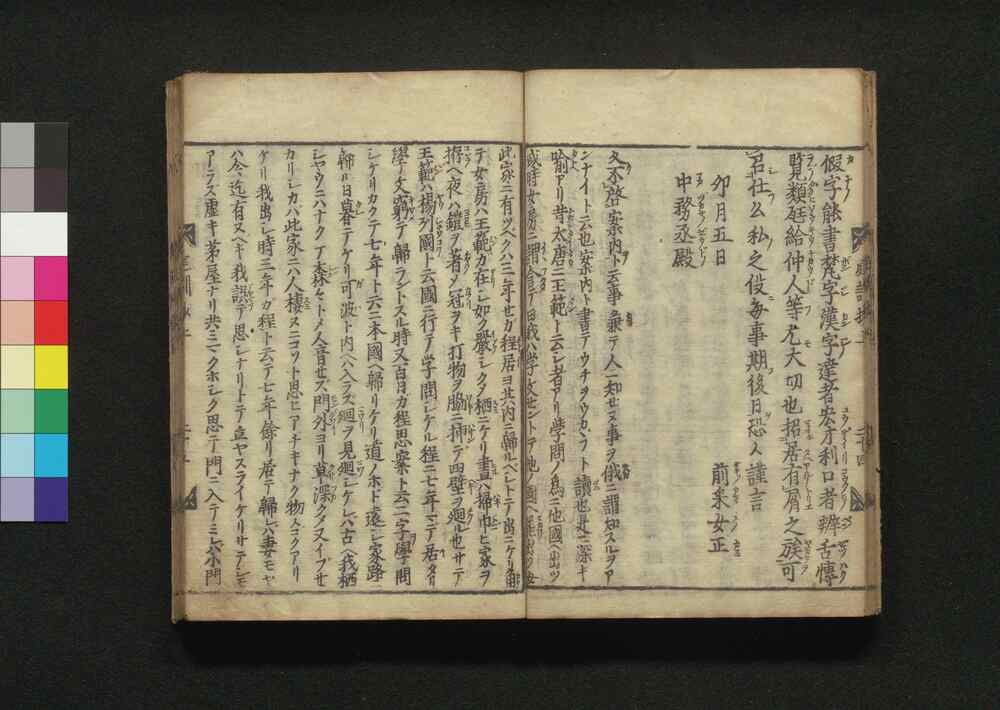 假字能書梵字漢字達者宏才利口者辨舌博
覽類延給仲人等尤大切也招居有屑之族可
召仕么私之伇毎事期後日恐々謹言
卯月五日 前采女正
中務丞殿
久不啓案内ト云事兼テ人ニ知セヌ事ヲ俄ニ謂知スルヲア
ンナイト云也案内ト書テウチヲウカヽフト讀也是ニ深キ
喩アリ昔大唐ニ王範ト云シ者アリ學問ノ爲ニ他國ヘ出ツ
或時女房ニ謂含テ曰我ハ学文セントテ他ノ國ヘ
此家ニ有ツベクハ三年セガ程居ヨ共内ニ歸ルベレトテ出ニケリ
テ女房ハ王範カ在シ如ク嚴シクタ栖ニケリ晝ハ掃巾ヒ家ヲ
拵ヘ夜ハ鎧ヲ著ノ冠ヲキ打物ヲ脇ニ挿テ四壁ヲ廻ル也サテ
王範ハ楊列國ト云國ニ行テ学問シケル程ニ七年マデ居タリ
學文窮テ歸ラントスル時又百日ガ程思案ト云二字學問
シケリカクテ七年ト云ニ本國ヘ歸リケリ道ノホド遠シ家路
歸ル日暮テケリ可波ト内ヘハ入ラズ廻ヲ見廻シケレバ古ヘ我栖
シヤウニハナクテ森々トメ人音セズ門外ヨリ草深クメ又イブセ
カリシカバ此家ニハ人棲ヌニコソト思ヒアヂキナク物スコクアリ
ケリ我出シ時三年ガ程ト云テ七年餘リ居テ歸レバ妻モヤ
ハ今迄有ヌベキ我誤テ思シナリトテ立ヤスライケリサテシモ
アラズ虚キ茅屋ナリ共ミマクホシク思テ門ニ入テミレバ小門